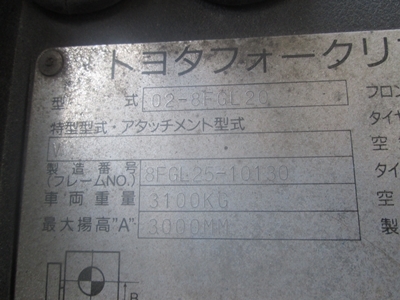 トヨタフォークリフ
型 式 02-8FGL25
フロン
特型型式・アタッチメント型式
タイヤ
V
空
製造番号
(フレームNO.) 8FGL25-10130
タイ
車両重量 3100KG
空
最大揚高"A" 3000MM
製
B